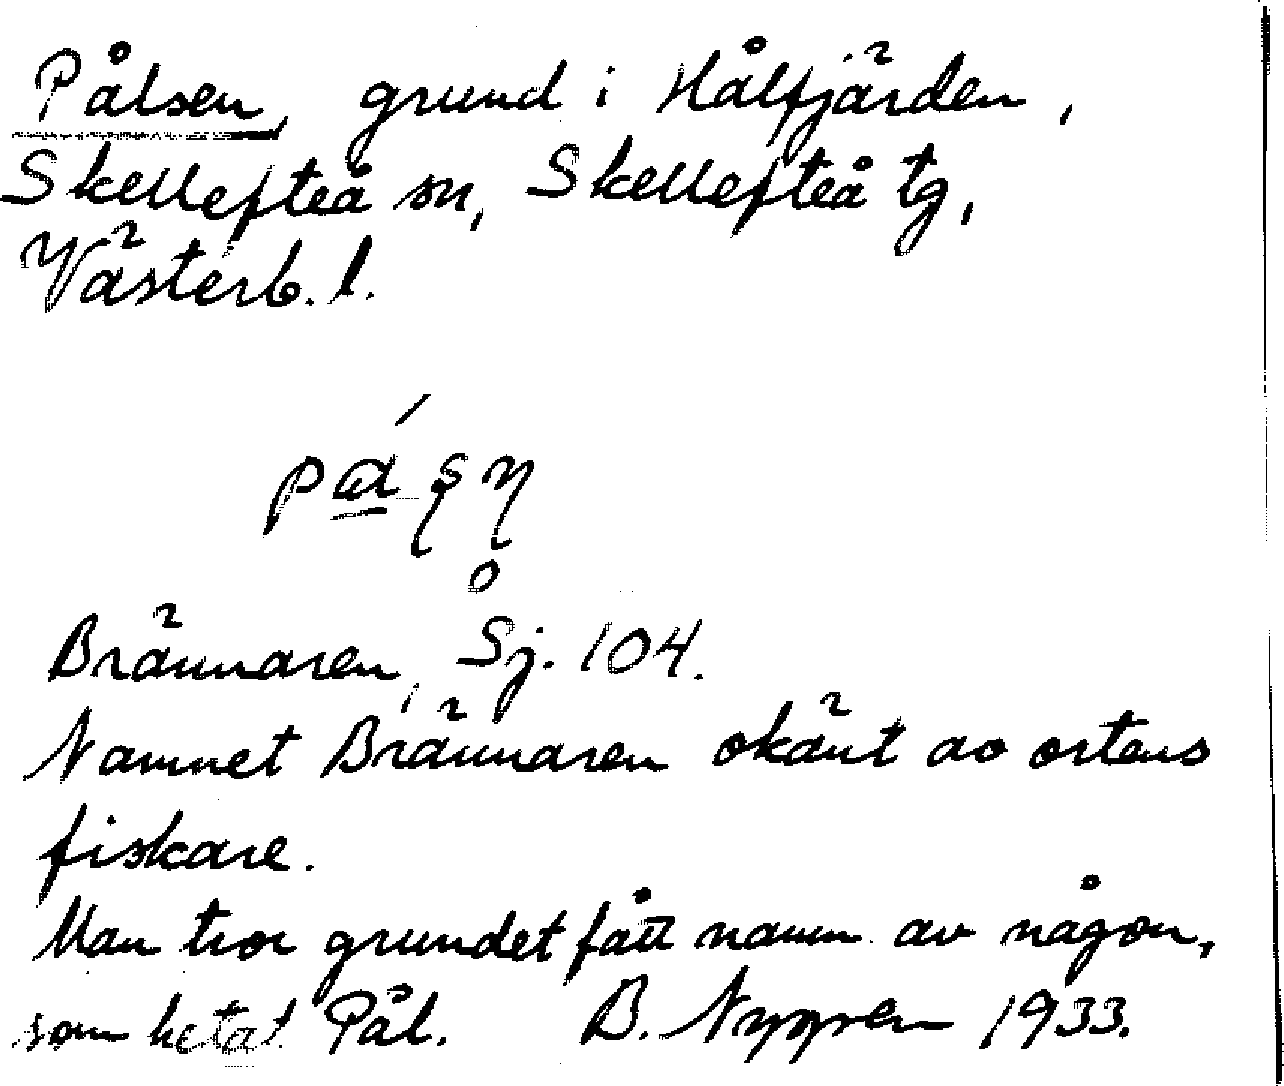 Pålsen, grund i Hålfjärden,
Skellefteå sn, Skellefteå tg,
Västerb. l.
Brännaren, Sj. 104.
Namnet Brännaren okänt av ortens
fiskare.
Man tror grundet fått namn av någon,
som hetat Pål. B. Nygren 1933.